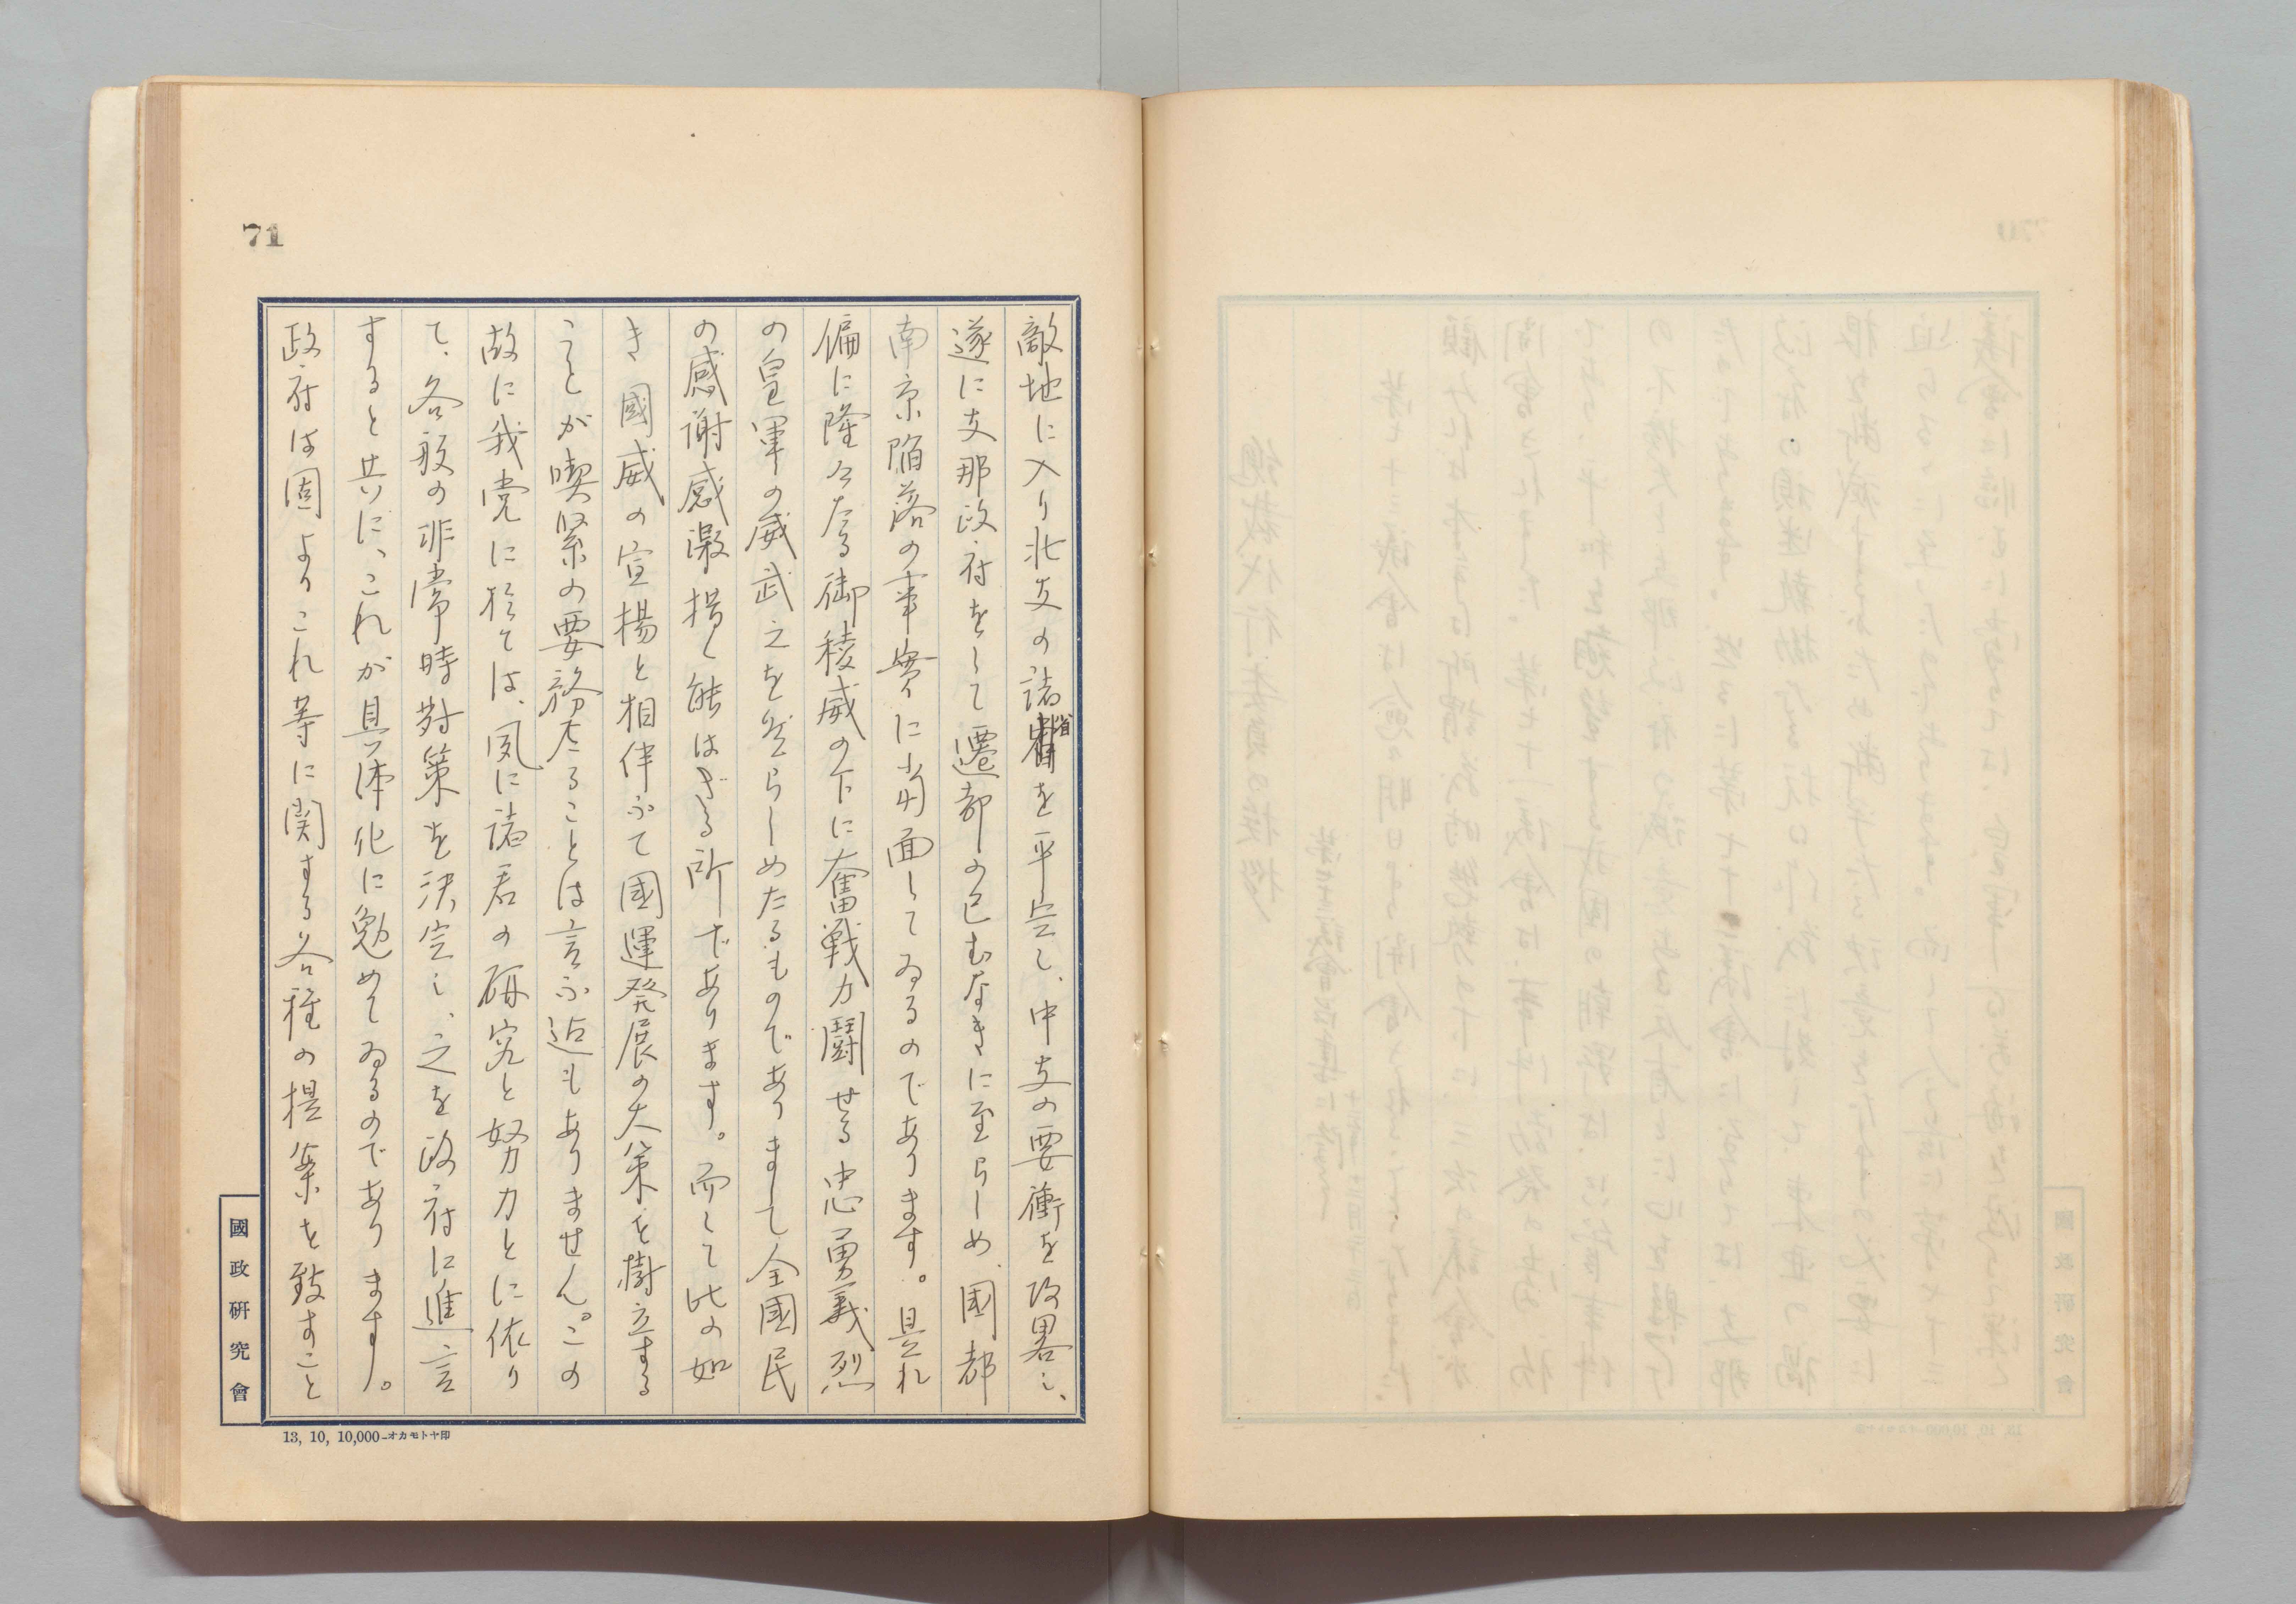 71
敵地に入り北支の諸省を平定し、中支の要衝を攻畧し、
遂に支那政府をして遷都の已むなきに至らしめ、國都
南京陥落の事実に当面してゐるのであります。是れ
偏に隆々たる御稜威の下に奮戦力闘せる忠勇義烈
の皇軍の威武之を然らしめたるものでありまして全國民
の感謝感激措く能はざる所であります。而して此の如
き國威の宣揚と相伴ふて國運発展の大策を樹立する
ことが喫緊の要務たることは言ふ迄もありません。この
故に我党に於ては、夙に諸君の研究と努力とに依り
て、各般の非常時対策を決定し、之を政府に進言
すると共に、これが具体化に勉めてゐるのであります。
政府は固よりこれ等に関する各種の提案を致すこと
國政研究會
13, 10, 10,000—オカモトヤ印